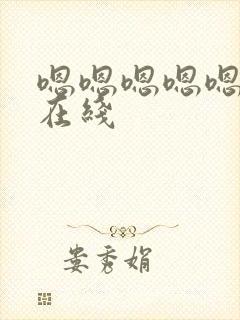 嗯嗯嗯嗯嗯
在綫
娄秀娟